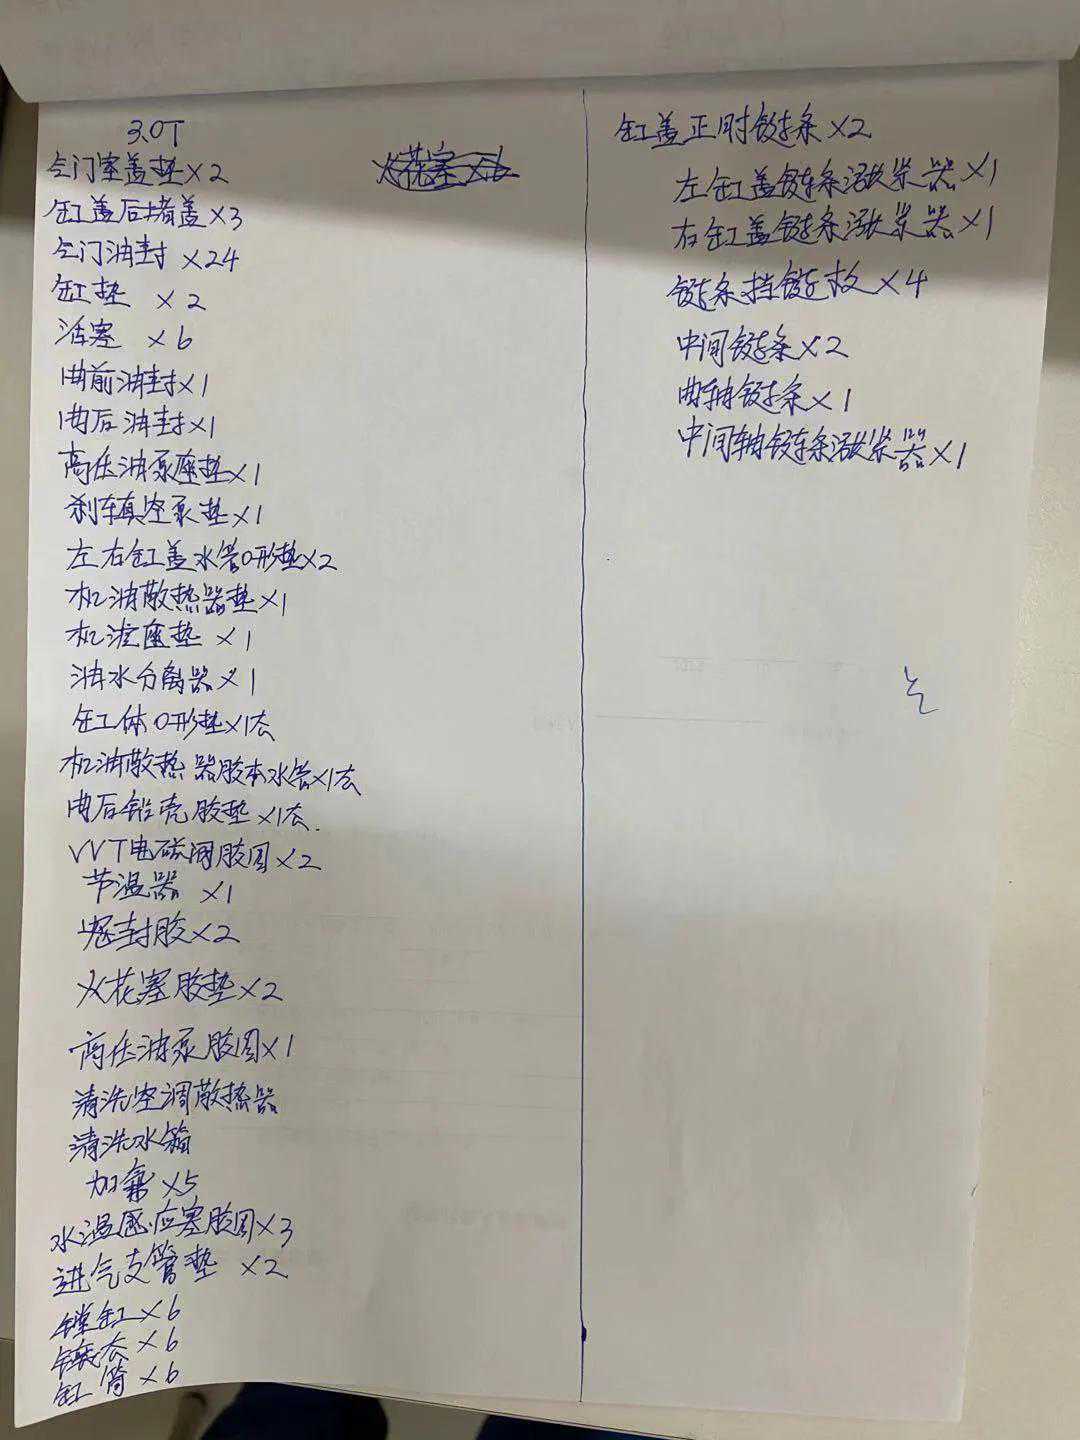 3.0T
气门室盖垫×2
缸盖后堵盖×3
气门油封×24
缸垫×2
活塞×6
曲前油封×1
曲后油封×1
高压油泵座垫×1
刹车真空泵垫×1
左右缸盖水管O形垫×2
机油散热器垫×1
机滤座垫×1
油水分离器×1
缸体O形垫×1套
机油散热器胶本水管×1套
曲后铝壳胶垫×1套.
VVT电磁阀胶圈×2
节温器×1
密封胶×2
火花塞胶垫×2
高压油泵胶圈×1
清洗空调散热器
清洗水箱
加氟×5
水温感应塞胶圈×3
进气支管垫×2
镗缸×6
镶套×6
缸筒×6
火花塞×6
缸盖正时链条×2
左缸盖链条涨紧器×1
右缸盖链条涨紧器×1
链条挡链板×4
中间链条×2
曲轴链条×1
中间轴链条涨紧器×1